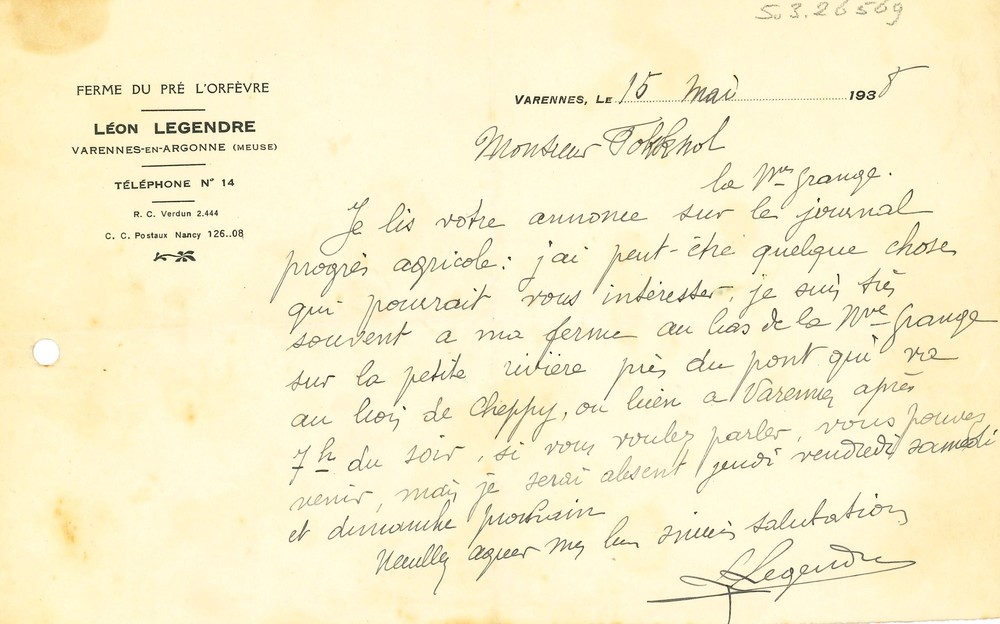 5.3.26569
FERME DU PRÉ L'ORFÈVRE
LÉON LEGENDRE
VARENNES-EN-ARGONNE (MEUSE)
TÉLÉPHONE N° 14
R. C. Verdun 2.444
C. C. Postaux Nancy 126..08
VARENNES, LE 15 Mai 1938
Monsieur
la Nve Grange.
Je lis votre annonce sur le journal
progrès agricole: j'ai peut-être quelque chose
qui pourrait vous intéresser, je suis très
souvent a ma ferme au bas de la Nve Grange
sur la petite rivière près du pont qui va
au bois de Cheppy, ou bien a Varennes après
7h du soir, si vous voulez parler, vous pouvez
venir, mais je serai absent jeudi vendredi samedi
et dimanche prochain
Veuillez agréer mes bien sincères salutations
Legendre